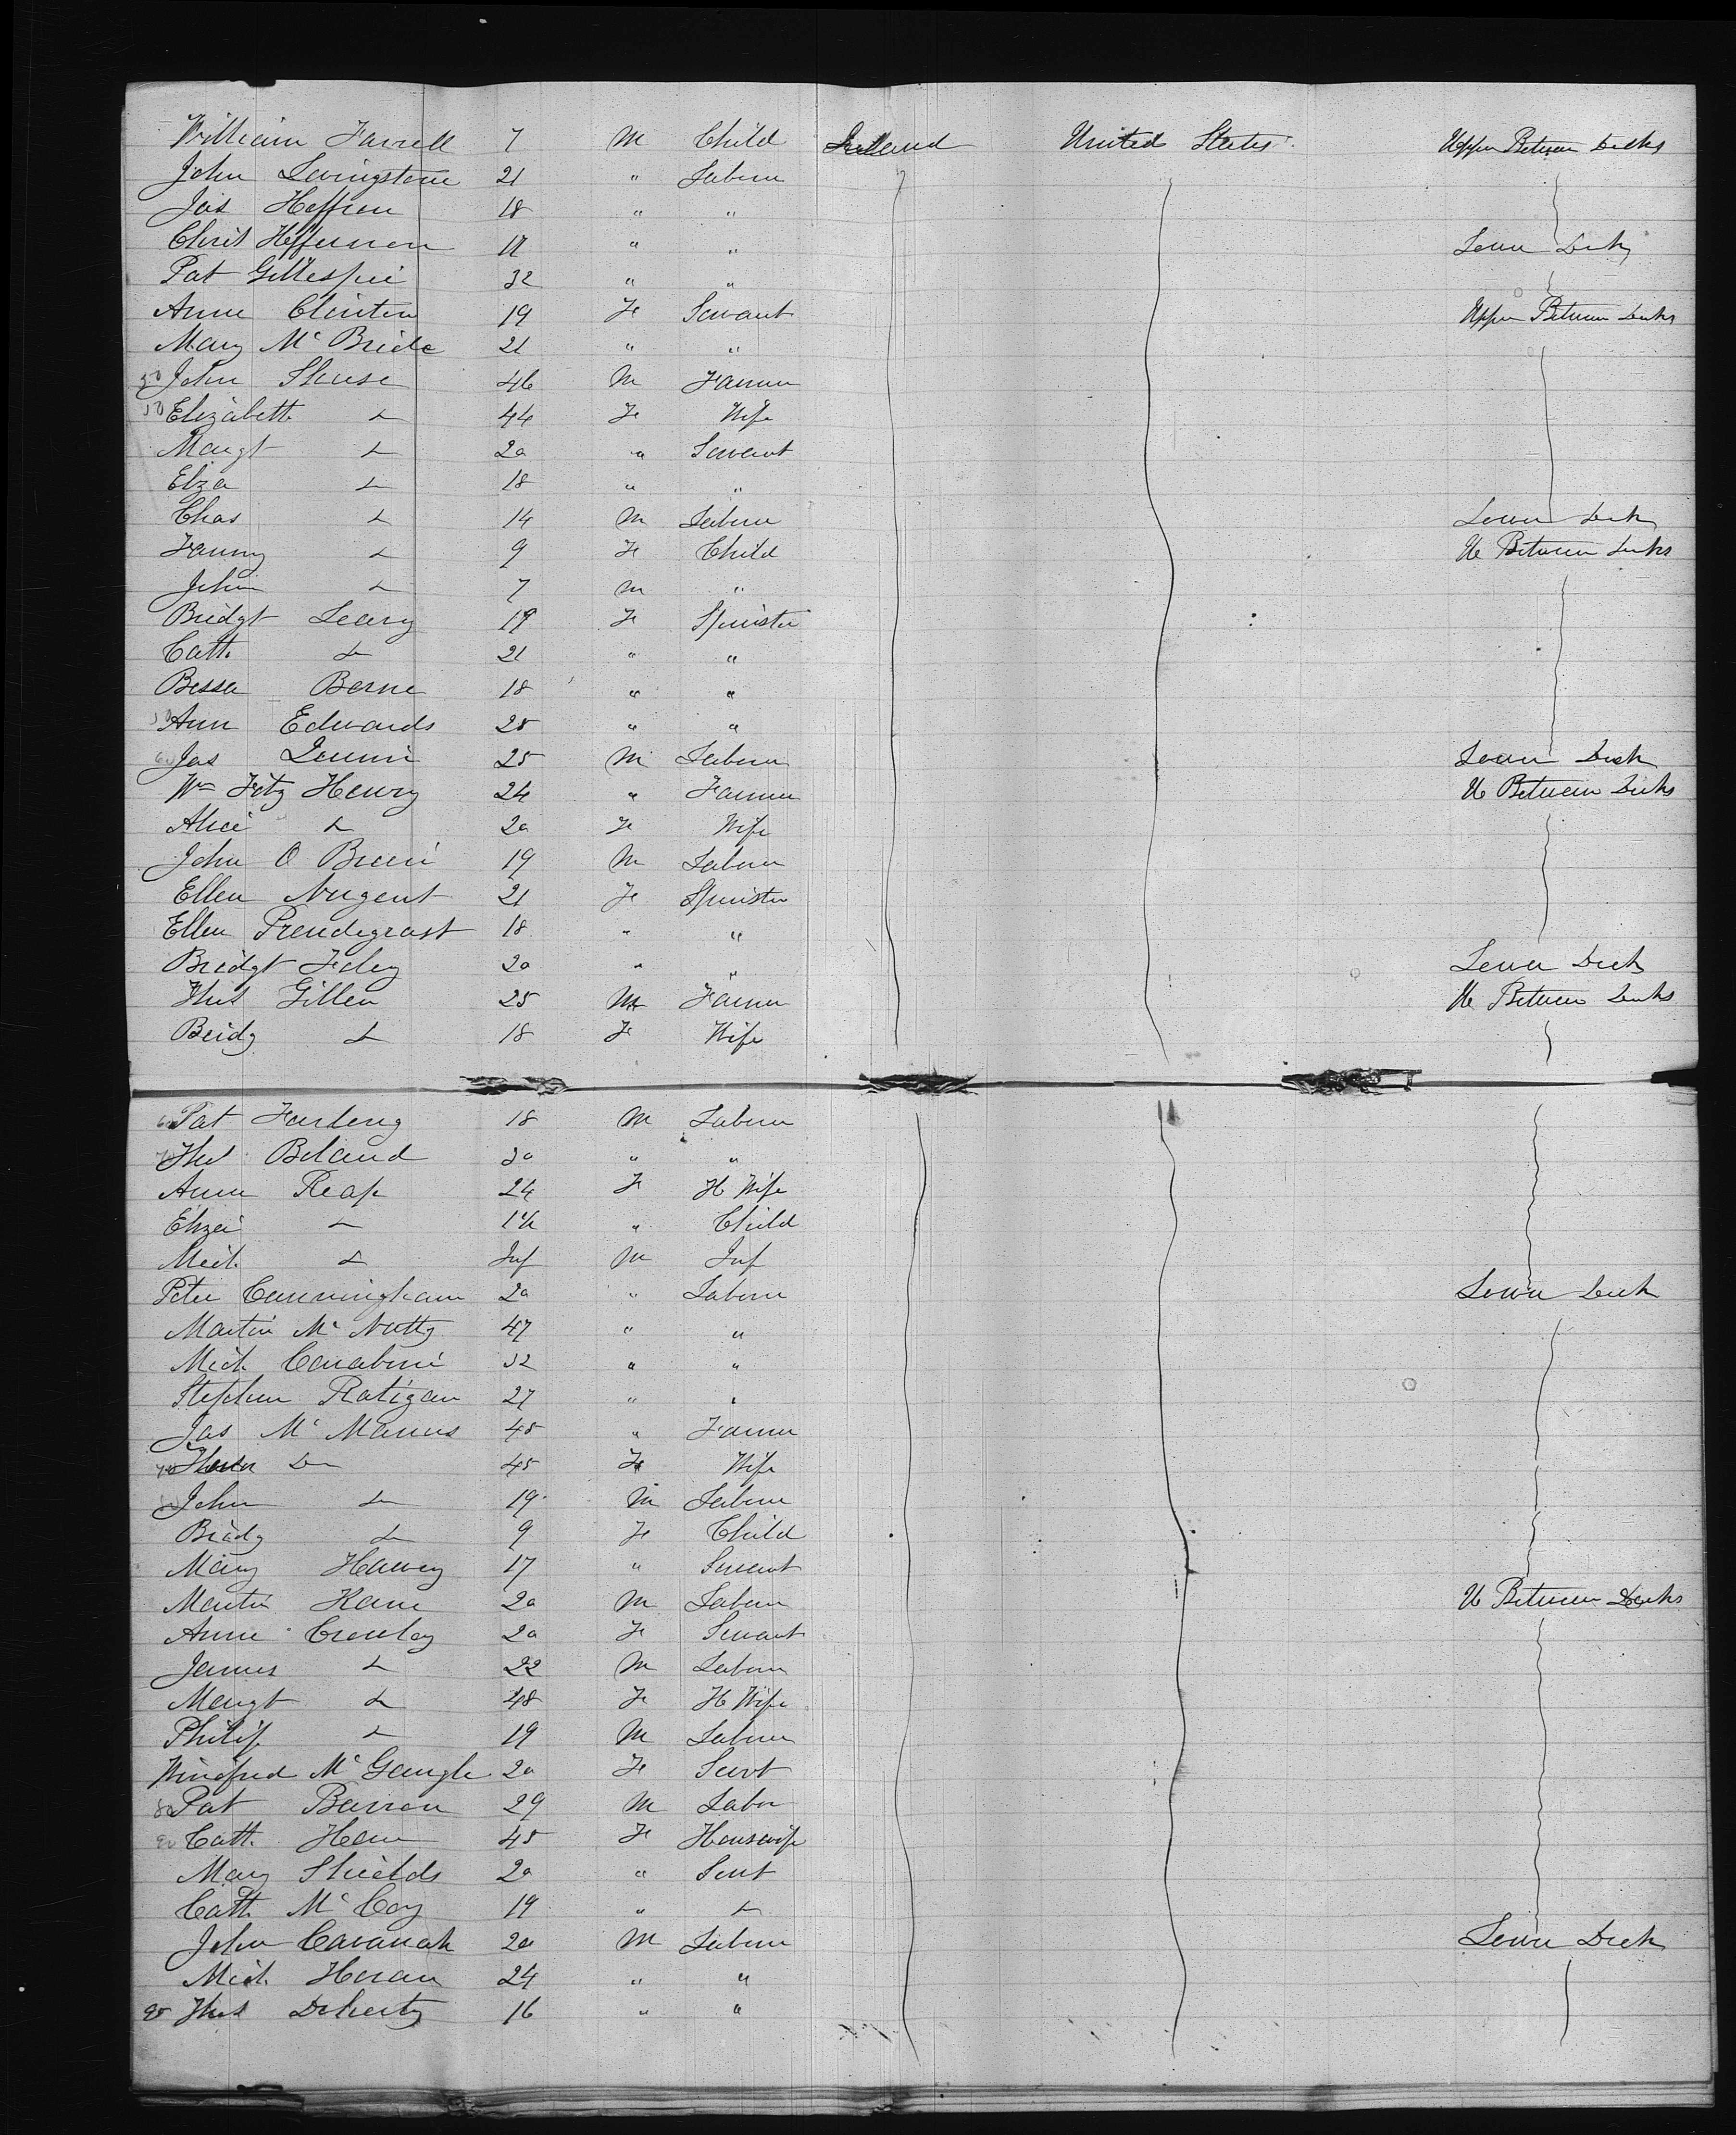 William Farrell 7 M Child Ireland United States Upper Between Decks
John Livingstone 21 " Laborer
Jas Heffren 18 " "
Christ Heffernan 17 " " Lower Deck
Pat Gillespie 32 " "
Anne Clinton 19 Fe Servant Upper Between Decks
Mary Mc Bride 21 " "
50 John 46 M Farmer
Elizabeth Do 44 Fe Wife
Margt Do 20 " Servant
Eliza Do 18 " "
Chas Do 14 M Laborer Lower Deck
Fanny Do 9 Fe Child U Between Decks
John Do 7 M "
Bridgt Leary 19 Fe Spinster
Cath Do 21 " "
Besse Berne 18 " "
Ann Edwards 25 " "
60 Jas 25 M Laborer Lower Deck
Wm Fitz Henry 24 " Farmer U Between Decks
Alice Do 20 Fe Wife
John O Brien 19 M Laborer
Ellen Nugent 21 Fe Spinster
Ellen Prendegrast 18 " "
Bridgt Foley 20 " " Lower Deck
Thos Gillen 25 M Farmer U Between Decks
Bridg Do 18 Fe Wife
Pat 18 M Laborer
Thos Boland 30 " "
Anne Reap 24 Fe H Wife
Eliza Do " Child
Mich Do Inf M Inf
Peter Cunningham 20 " Laborer Lower Deck
Martin Mc Nutty 47 " "
Mich 32 " "
Stephen Ratigan 27 " "
Jas Mc Manus 45 " Farmer
Do 45 Fe Wife
John Do 19 M Laborer
Bridg Do 9 Fe Child
Mary 17 " Servant
Martin Kane 20 M Laborer U Between Decks
Anne Crowley 20 Fe Servant
James Do 22 M Laborer
Margt Do 48 Fe H Wife
Philip Do 19 M Laborer
Winifred Mc 20 Fe Servt
Pat Barron 29 M Labor
90 Cath 45 Fe Housewife
Mary Shields 20 " Servt
Cath Mc Coy 19 " Do
John Cavanah 20 M Laborer Lower Deck
Mich Horan 24 " "
95 Thos Doherty 16 " "